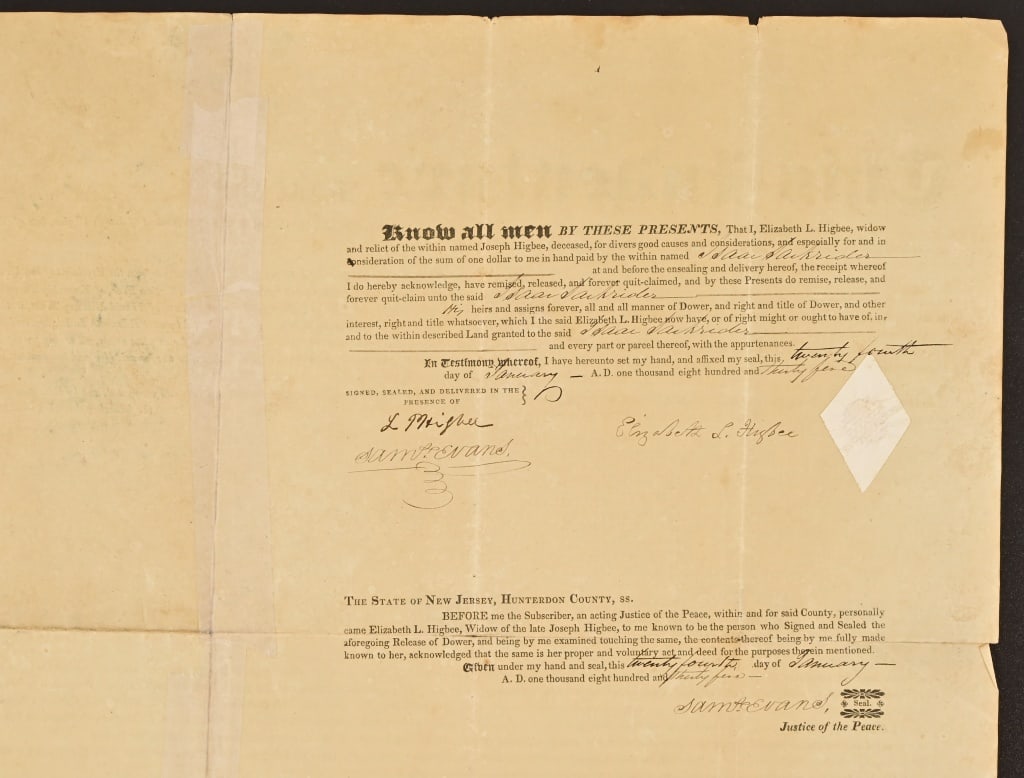 Know all men BY THESE PRESENTS, That I, Elizabeth L. Higbee, widow
and relict of the within named Joseph Higbee, deceased, for divers good causes and considerations, and especially for and in
consideration of the sum of one dollar to me in hand paid by the within named Isaac
at and before the ensealing and delivery hereof, the receipt whereof
I do hereby acknowledge, have remised, released, and forever quit-claimed, and by these Presents do remise, release, and
forever quit-claim unto the said Isaac
his heirs and assigns forever, all and all manner of Dower, and right and title of Dower, and other
interest, right and title whatsoever, which I the said Elizabeth L. Higbee now have, or of right might or ought to have of, in,
and to the within described Land granted to the said Isaac
and every part or parcel thereof, with the appurtenances.
In Testimony whereof, I have hereunto set my hand, and affixed my seal, this twenty fourth
day of January — A. D. one thousand eight hundred and thirty five
SIGNED, SEALED, AND DELIVERED IN THE
PRESENCE OF
L Higbee
Elizabeth L. Higbee
Saml. Evans.
THE STATE OF NEW JERSEY, HUNTERDON COUNTY, SS.
BEFORE me the Subscriber, an acting Justice of the Peace, within and for said County, personally
came Elizabeth L. Higbee, Widow of the late Joseph Higbee, to me known to be the person who Signed and Sealed the
aforegoing Release of Dower, and being by me examined touching the same, the contents thereof being by me fully made
known to her, acknowledged that the same is her proper and voluntary act and deed for the purposes therein mentioned.
Given under my hand and seal, this twenty fourth day of January —
A. D. one thousand eight hundred and thirty five —
Saml. Evans, Seal.
Justice of the Peace.